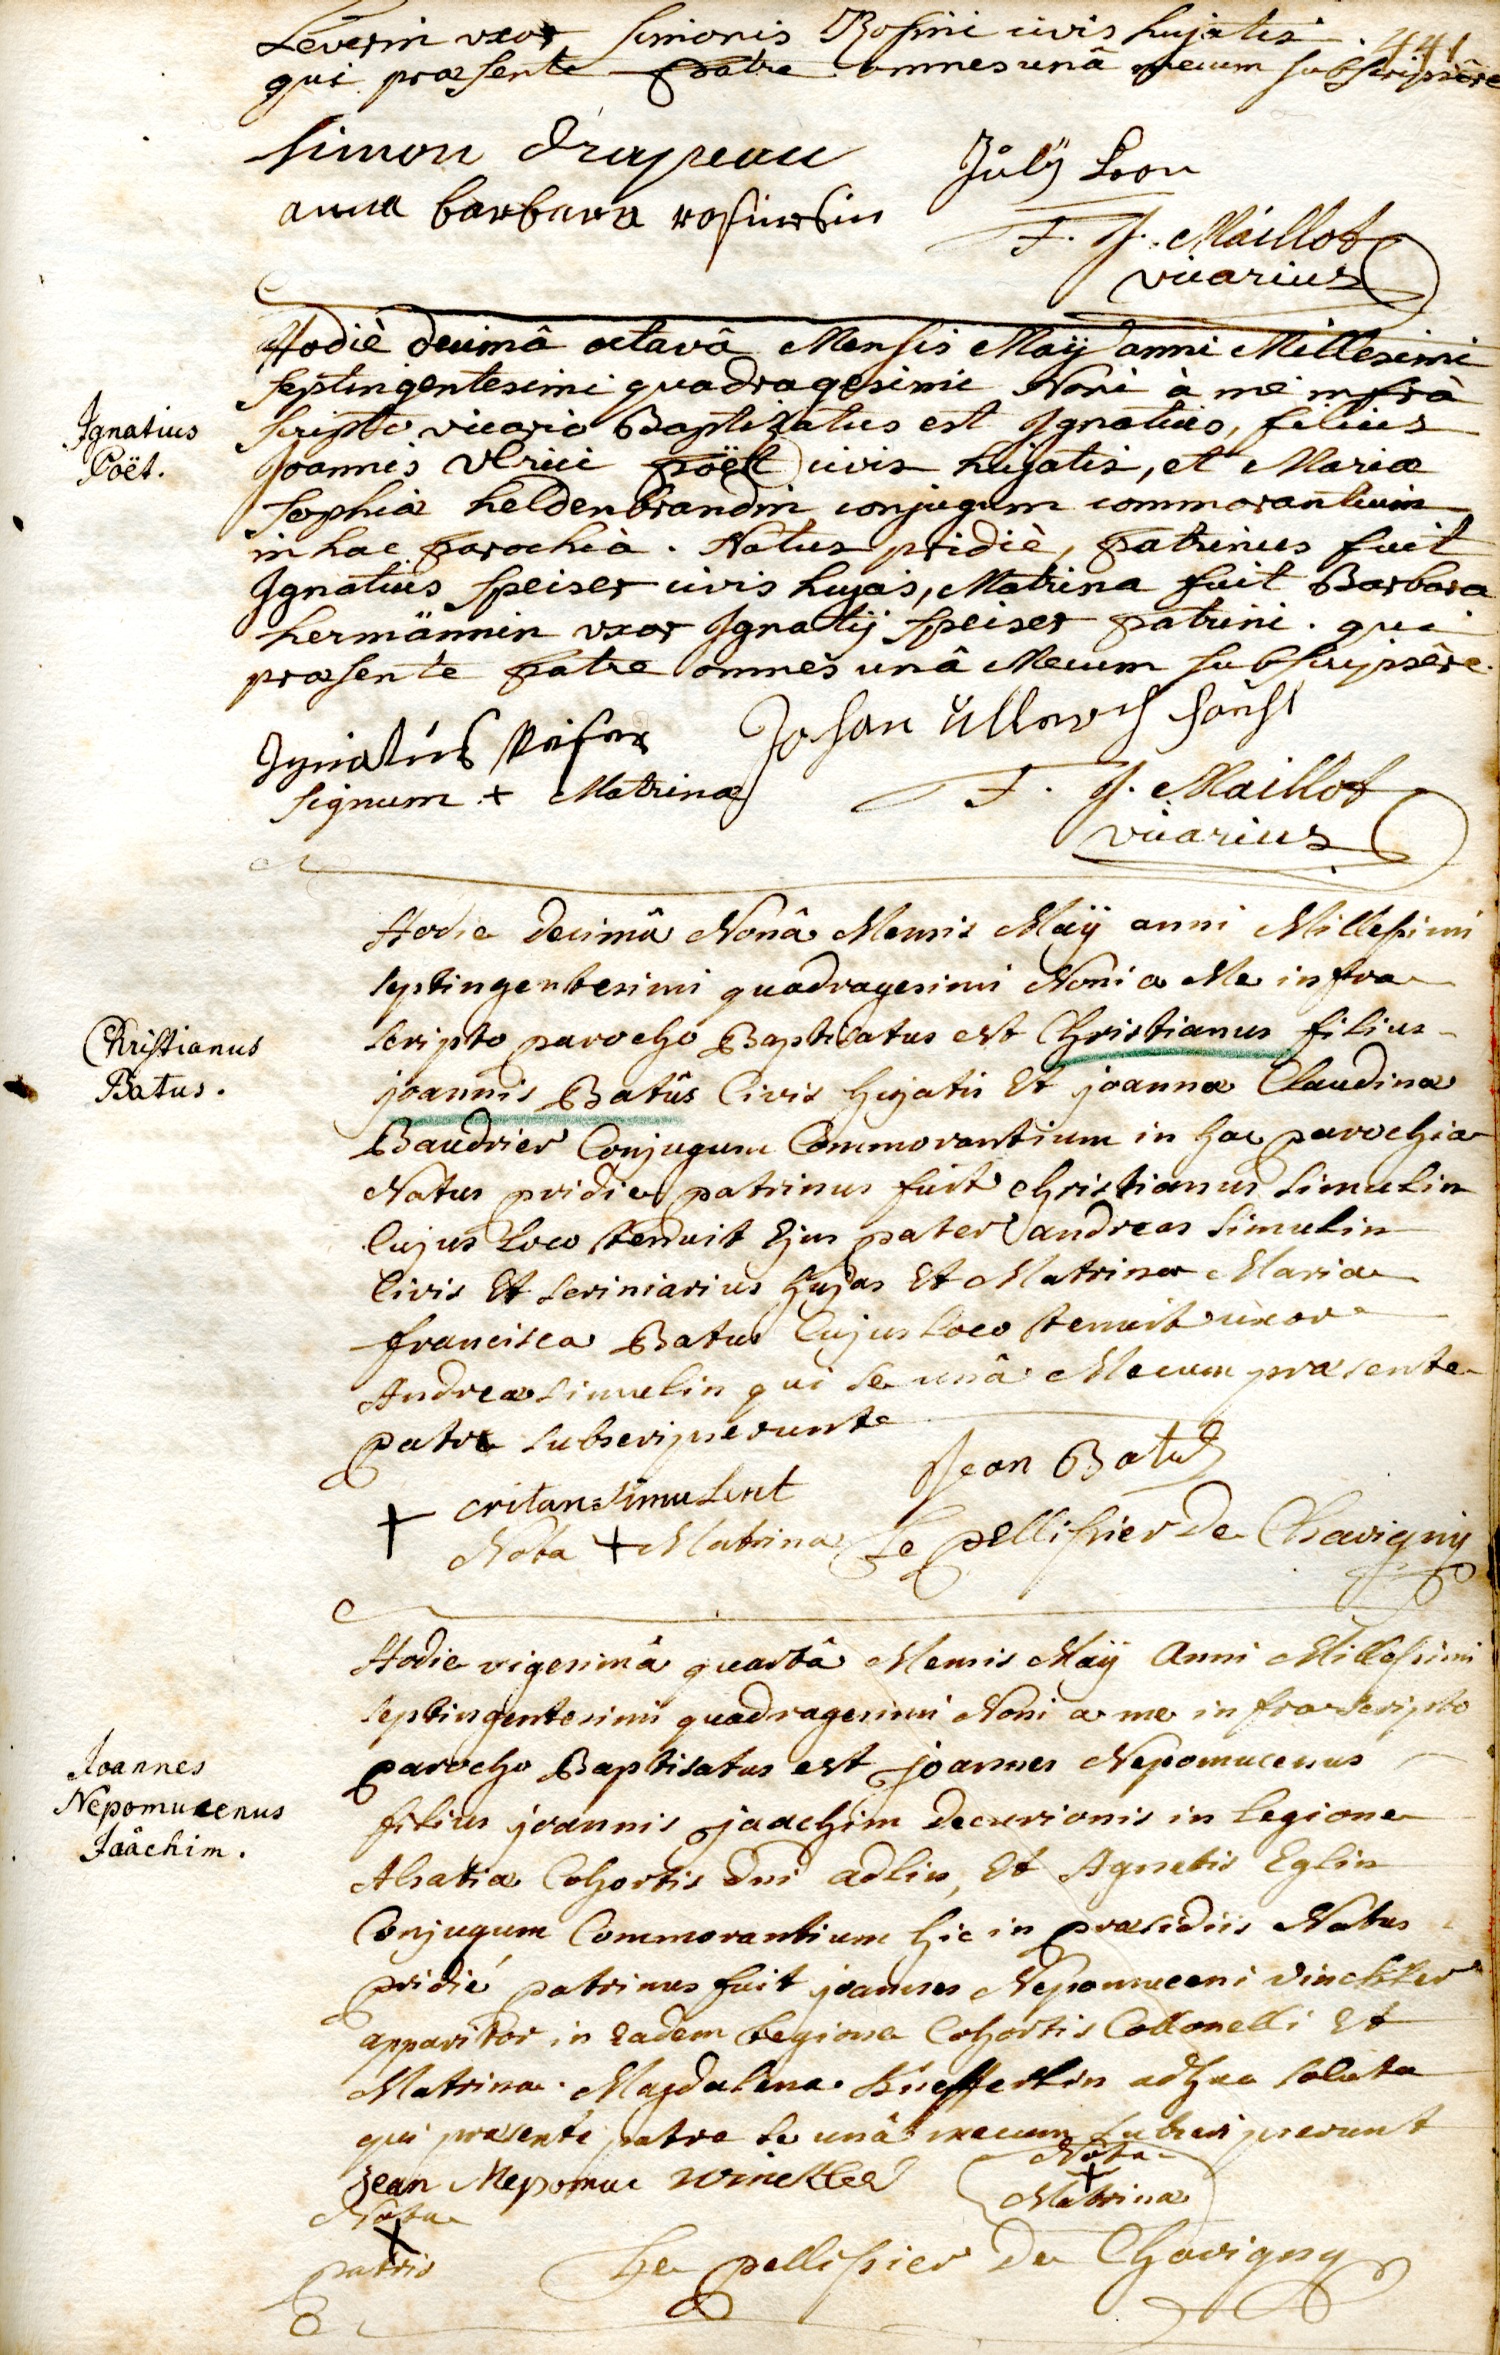 441
Leverin uxor Simonis Rosini civis hujatis.
qui præsente patre omnes unâ mecum subscripsêre
Simon Drapeau
July Leon
anna barbara rosinerin
F. J. Maillot
vicarius
Hodiè decimâ octavâ Mensis Maÿ anni Millesimi
septingentesimi quadragesimi Noni à me infrà
Ignatius
Poët.
scripto vicario Baptizatus est Ignatius, filius
Joannis Ulrici poët civis hujatis, et Mariæ
Sophiæ heldenbrandin conjugum commorantium
in hac parochiâ. Natus pridiè, patrinus fuit
Ignatius Speiser civis hujas, Matrina fuit Barbara
hermännin uxor Ignatij Speiser patrini. qui
præsente patre omnes unâ Mecum subscripsêre.
Ignatius
Johan
signum + Matrinæ
F. J. Maillot
vicarius
Hodie decimâ Nonâ Mensis Maÿ anni Millesimi
septingentesimi quadragesimi Noni a Me infra
Christianus
Batus.
scripto parocho Baptisatus est Christianus filius
joannis Batûs Civis hujatis Et joannæ Claudinæ
Baudrier Conjugum Commorantium in hac parochia
Natus pridie patrinus fuit christianus Simulin
Cujus Loco tenuit Ejus pater andreas Simulin
Civis Et scriniarius hujas Et Matrina Maria
francisca Batus Cujus loco tenuit uxor
Andreæ Simulin qui se unâ Mecum præsente
patre subscripserunt
Jean Batus
+ critan Simulent
Nota + Matrinæ
Le pellissier de Chavigny
Hodie vigesimâ quartâ Mensis Maÿ Anni Millesimi
septingentesimi quadragesimi Noni a me infrascripto
Joannes
Nepomucenus
Jaâchim.
parocho Baptisatus est joannes Nepomucenus
filius joannis jaachim decurionis in legione
Alsatiæ Cohortis dni adlin, Et Agnetis Eglin
Conjugum Commorantium hic in præsidiis Natus
pridié patrinus fuit joannes Nepomuceni Vinckler
apparitor in Eadem legione Cohortis Collonelli Et
Matrina Magdalena Kuefferlin adhuc soluta
qui præsente patre se unâ mecum subscripserunt
jean Nepomuc winckler
Nota
+
Matrinæ
Nota
+
patris
Le pellissier de Chavigny